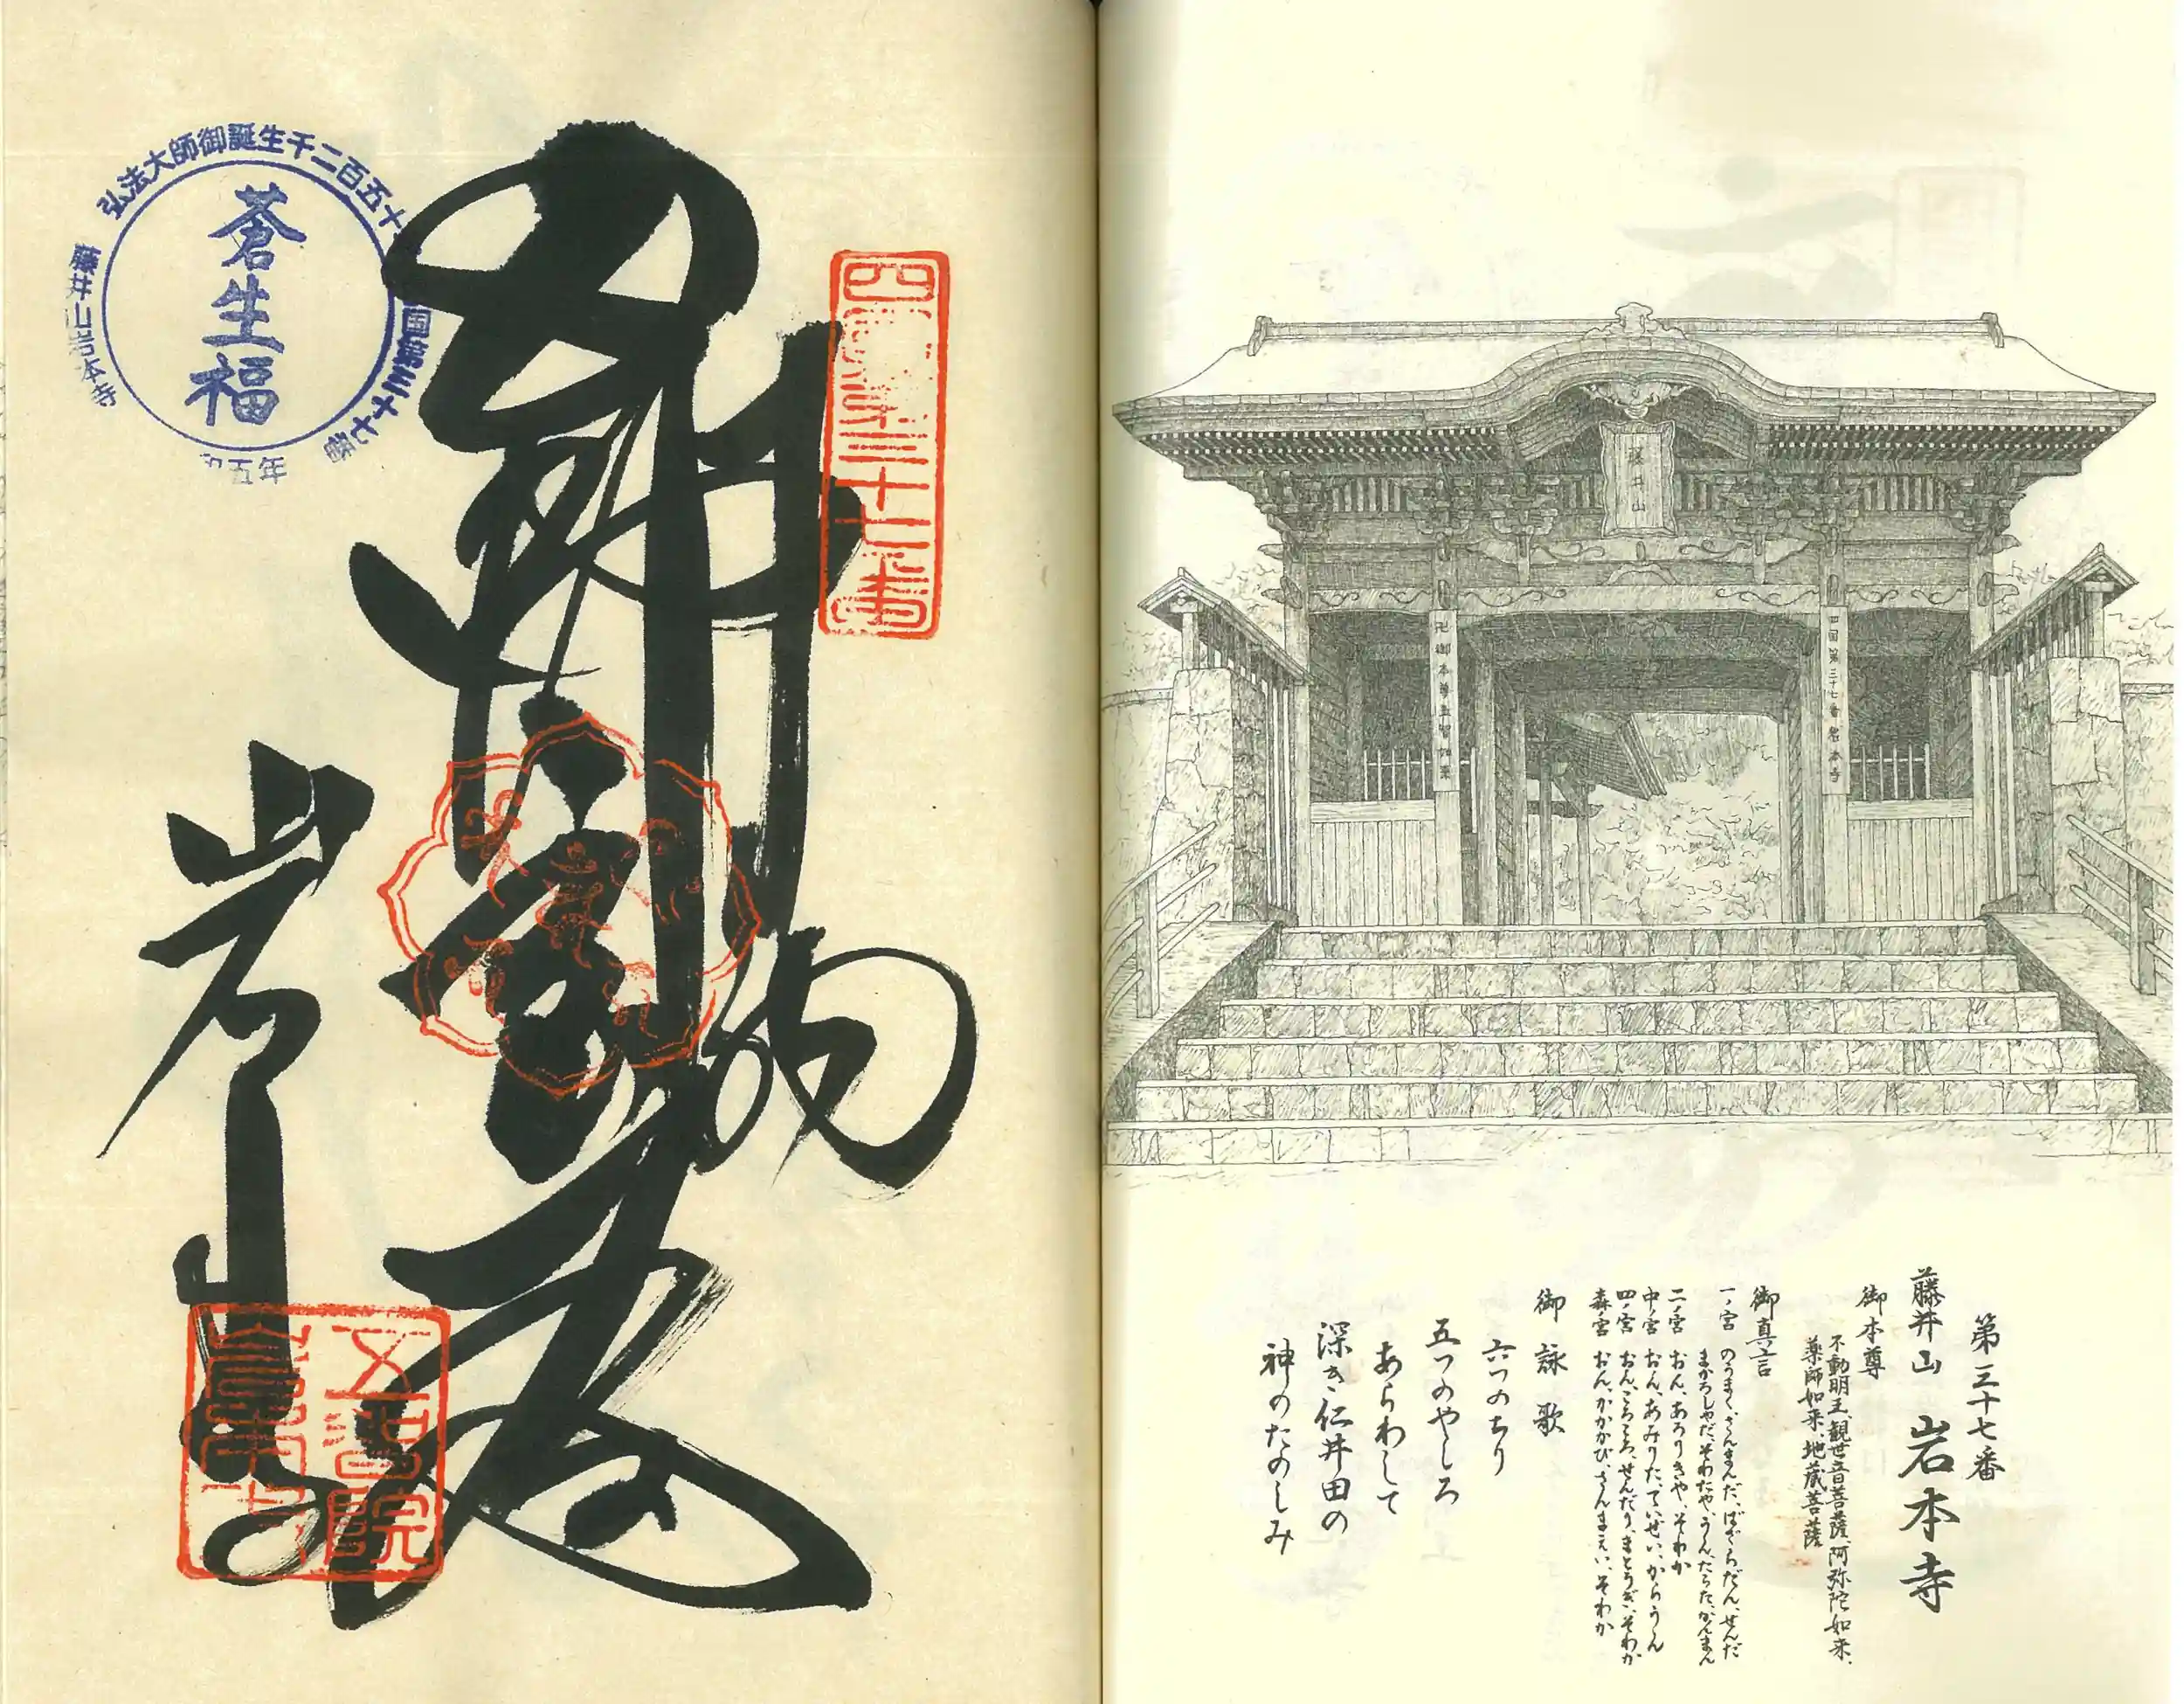 第三十七番
藤井山 岩本寺
御本尊
不動明王、観世音菩薩、阿弥陀如来、
薬師如来、地蔵菩薩
御真言
一ノ宮 のうまく、さんまんだ、ばざらだん、せんだ
まかろしゃだ、そわたや、うん、たらた、かんまん
二ノ宮 おん、あろりきや、そわか
中ノ宮 おん、あみりた、ていせい、からうん
四ノ宮 おん、ころころ、せんだり、まとうぎ、そわか
森ノ宮 おん、かかかび、さんまえい、そわか
御詠歌
六つのちり
五つのやしろ
あらわして
深き仁井田の
神のたのしみ
藤井山
四国第三十七番岩本寺
四国第三十七番
岩本寺
五智院
岩本寺
弘法大師御誕生千二百五十
国第三十七番
藤井山岩本寺
五年
蒼生福